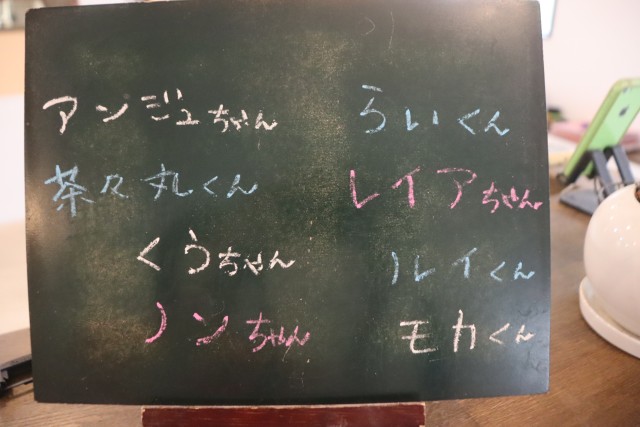 アンジュちゃん
茶々丸くん
くうちゃん
ノンちゃん
らいくん
レイアちゃん
ルイくん
モカくん